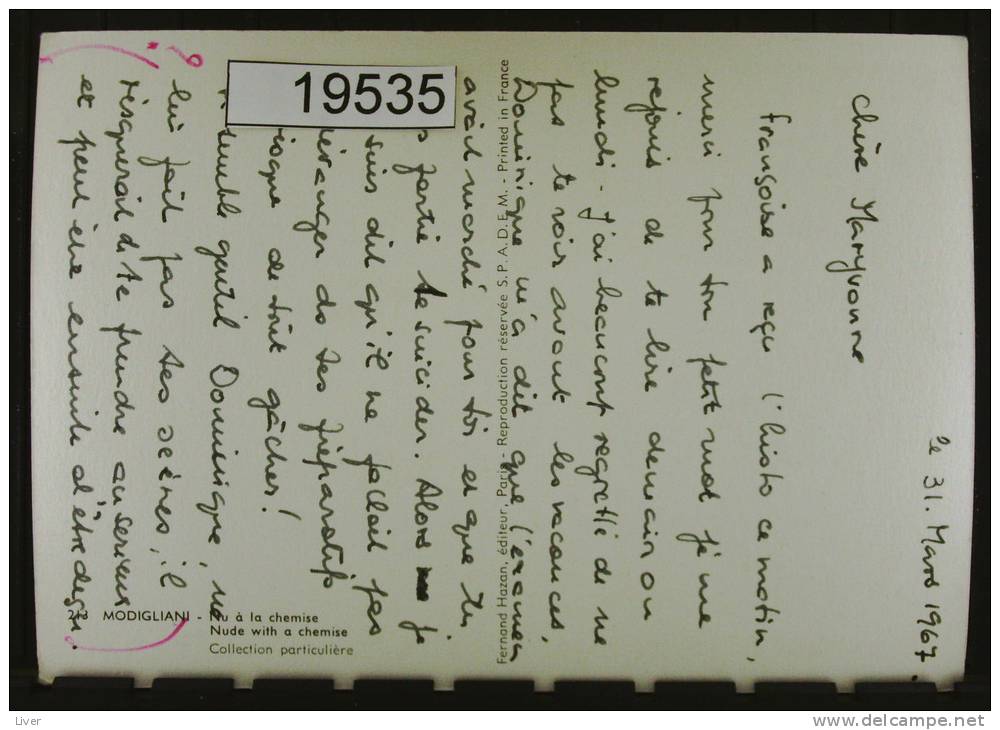 le 31. Mars 1967.
chère Maryvonne
Françoise a reçu l'histo ce matin,
merci pour ton petit mot je me
rejouis de te lire demain ou
lundi - J'ai beaucoup regretté de ne
pas te voir avant les vacances,
Dominique m'a dit que l'examen
avait marché pour toi et que tu
partie te suicider. Alors je
suis dit qu'il ne fallait pas
déranger ds tes préparatifs
risque de tout gâcher!
semble gentil Dominique, ne
lui fait pas tes scènes, il
risquerait d te prendre au serieux
et peut être ensuite d'être deçu.
19535
Fernand Hazan, éditeur, Paris - Reproduction réservée S.P.A.D.E.M. - Printed in France
213 MODIGLIANI - Nu à la chemise
Nude with a chemise
Collection particulière
Liver
www.delcampe.net